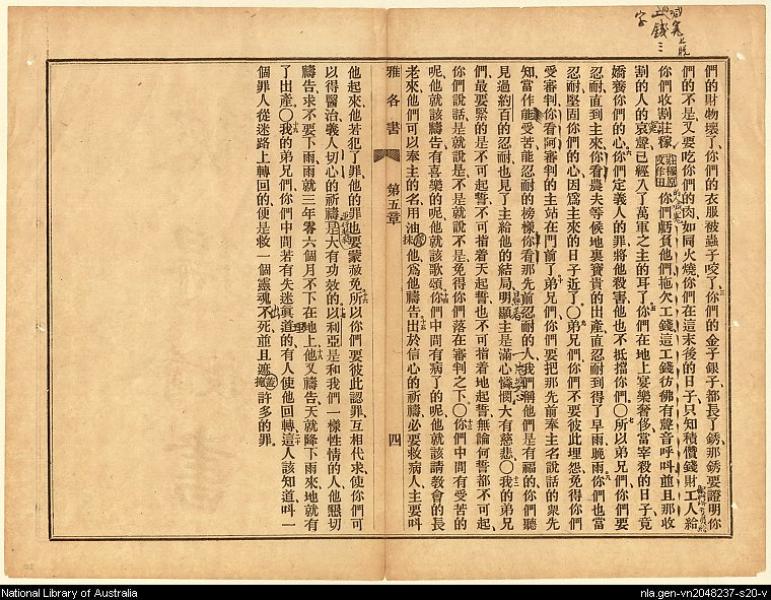 們的財物壞了、你們的衣服被蟲子咬了、你們的金子銀子、都長了銹、那銹要證明你
們的不是、又要吃你們的肉、如同火燒、你們在這末後的日子、只知積儹錢財、工人給
你們收割莊稼、你們虧負他們、拖欠工錢、這工錢彷彿有聲音呼呌、並且那收
割的人的哀聲、已經入了萬軍之主的耳了、你們在地上宴樂奢侈、當宰殺的日子、竟
嬌養你們的心、你們定義人的罪、將他殺害、他也不抵擋你們、〇所以弟兄們、你們要
忍耐、直到主來、你看農夫等候地裏寶貴的出產、直忍耐到得了早雨晚雨、你們也當
忍耐、堅固你們的心、因爲主來的日子近了、〇弟兄們、你們不要彼此埋怨、免得你們
受審判、你看阿、審判的主站在門前了、弟兄們、你們要把那先前奉主名說話的衆先
知、當作能受苦能忍耐的榜樣、你看那先前忍耐的人、我們稱他們是有福的、你們聽
見過約百的忍耐、也見了主給他的結局、明顯主是滿心憐憫、大有慈悲、〇我的弟兄
們、最要緊的是不可起誓、不可指着天起誓、也不可指着地起誓、無論何誓都不可起、
你們說話、是就說是、不是就說不是、免得你們落在審判之下、〇你們中間有受苦的
呢、他就該禱告、有喜樂的呢、他就該歌頌、你們中間有病了的呢、他就該請教會的長
老來、他們可以奉主的名用油抹他、爲他禱告、出於信心的祈禱、必要救病人、主要呌
雅各書 第五章 四
他起來、他若犯了罪、他的罪也要蒙赦免、所以你們要彼此認罪、互相代求、使你們可
以得醫治、義人切心的祈禱、是大有功效的、以利亞是和我們一樣性情的人、他懇切
禱告、求不要下雨、雨就三年零六個月不下在地上、他又禱告、天就降下雨來、地就有
了出產、〇我的弟兄們、你們中間若有失迷眞道的、有人使他回轉、這人該知道、呌一
個罪人從迷路上轉回的、便是救一個靈魂不死、並且遮掩許多的罪、
National Library of Australia
nla.gen-vn2048237-s20-v